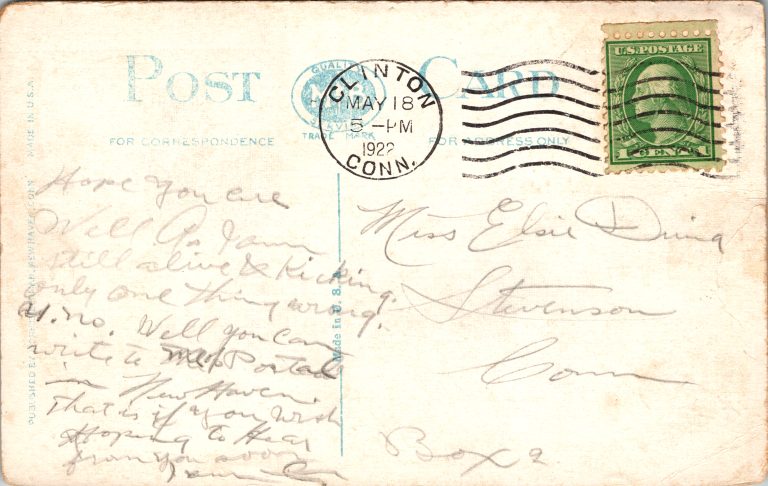 POST CARD
QUALITY
TRADE MARK
FOR CORRESPONDENCE
FOR ADDRESS ONLY
CLINTON
MAY 18
5-PM
1922
CONN.
U.S. POSTAGE
1 CENT 1
MADE IN U.S.A.
PUBLISHED BY
NEW HAVEN, CONN.
Made in U.S.A.
Hope you are
Well As I am
still alive & Kicking.
only one thing wrong.
U. No. Well you can
write to me Postals
in New Haven.
That is if you wish
Hoping to Hear
from you soon
Miss Elsie
Stevenson
Conn
Box 2